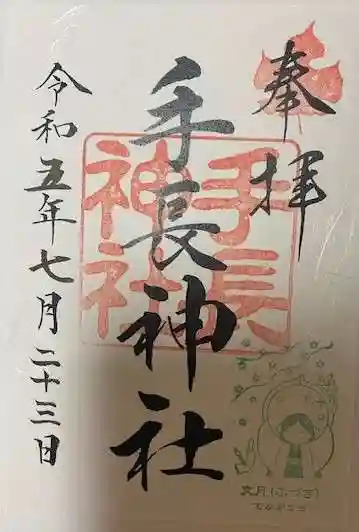 奉拝
手長神社
手長
神社
令和五年七月二十三日
文月(ふづき)